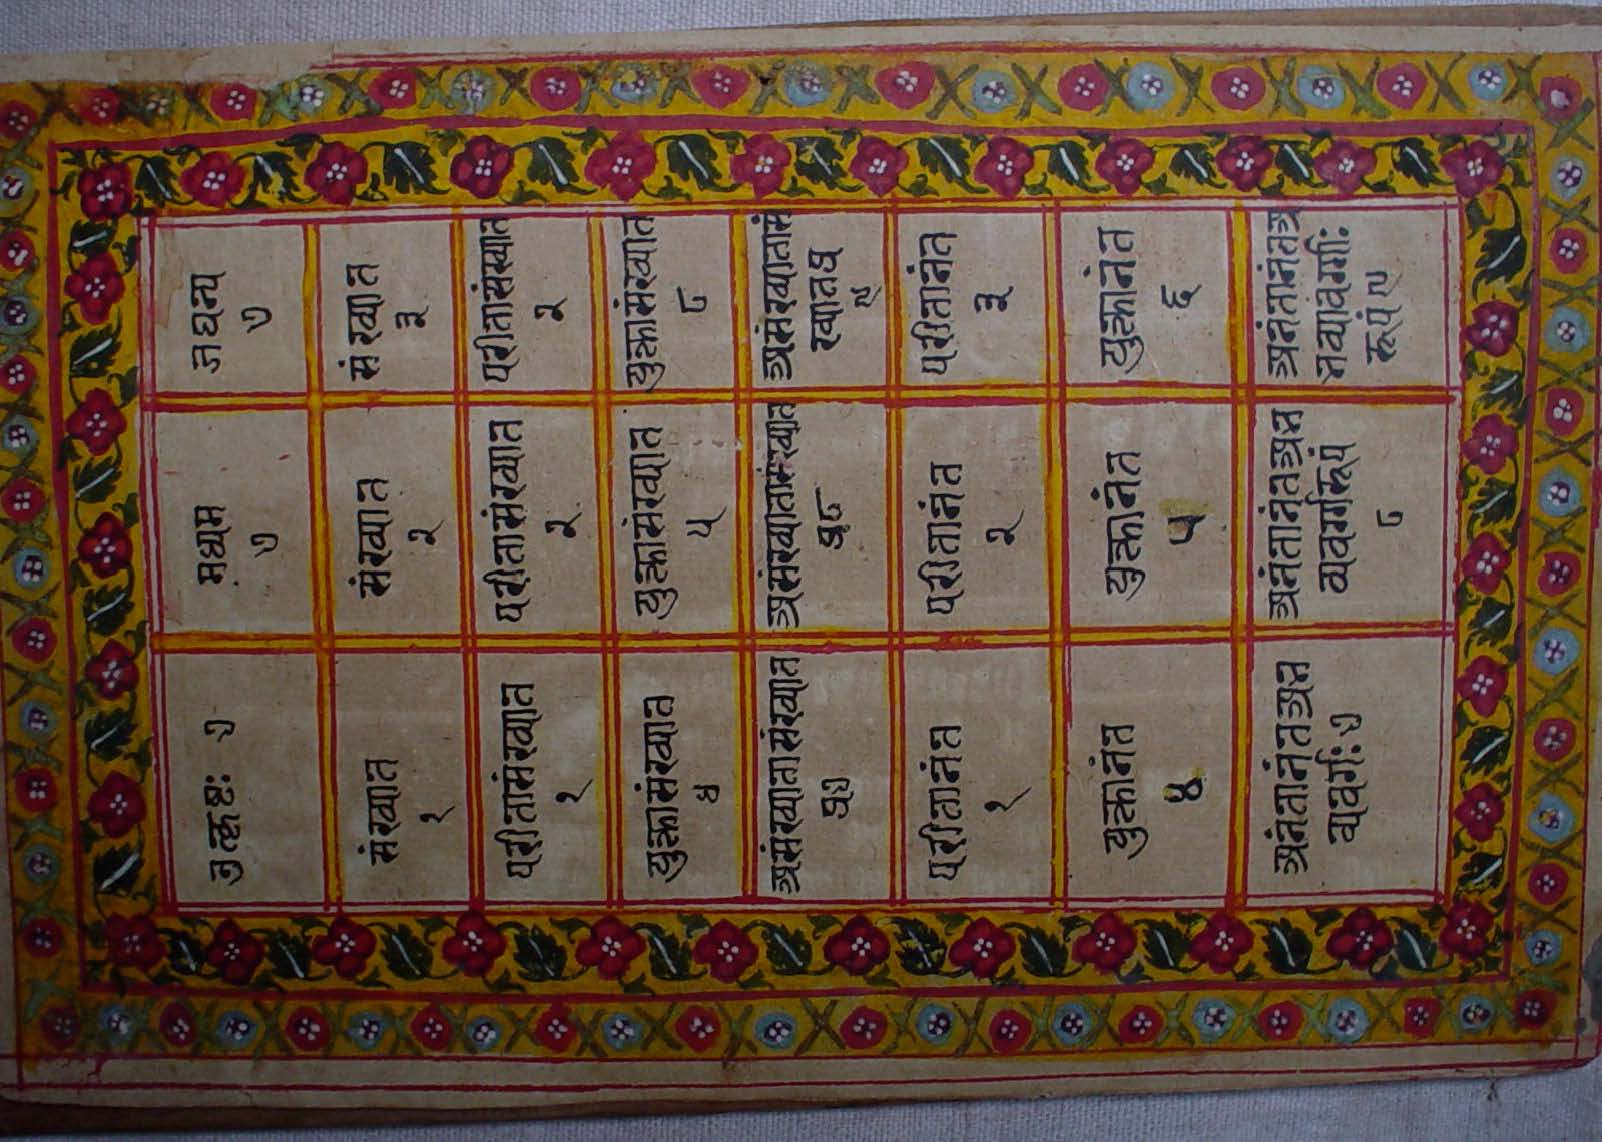 उत्कृष्टः ७
मध्यम
७
जघन्य
७
संख्यात
१
संख्यात
२
संख्यात
३
परीतासंख्यात
१
परीतासंख्यात
२
परीतासंख्यात
२
युक्तासंख्यात
४
युक्तासंख्यात
५
युक्तासंख्यात
८
असंख्यातासंख्यात
असंख्यातासंख्यात
असंख्यातासं
ख्यात
९
परीतानंत
१
परीतानंत
२
परीतानंत
३
युक्तानंत
४
युक्तानंत
५
युक्तानंत
६
अनंतानंतअन
यवर्गः ७
अनंतानंतअन
यवर्गरूपं
८
अनंतानंतअ
रूपं ९